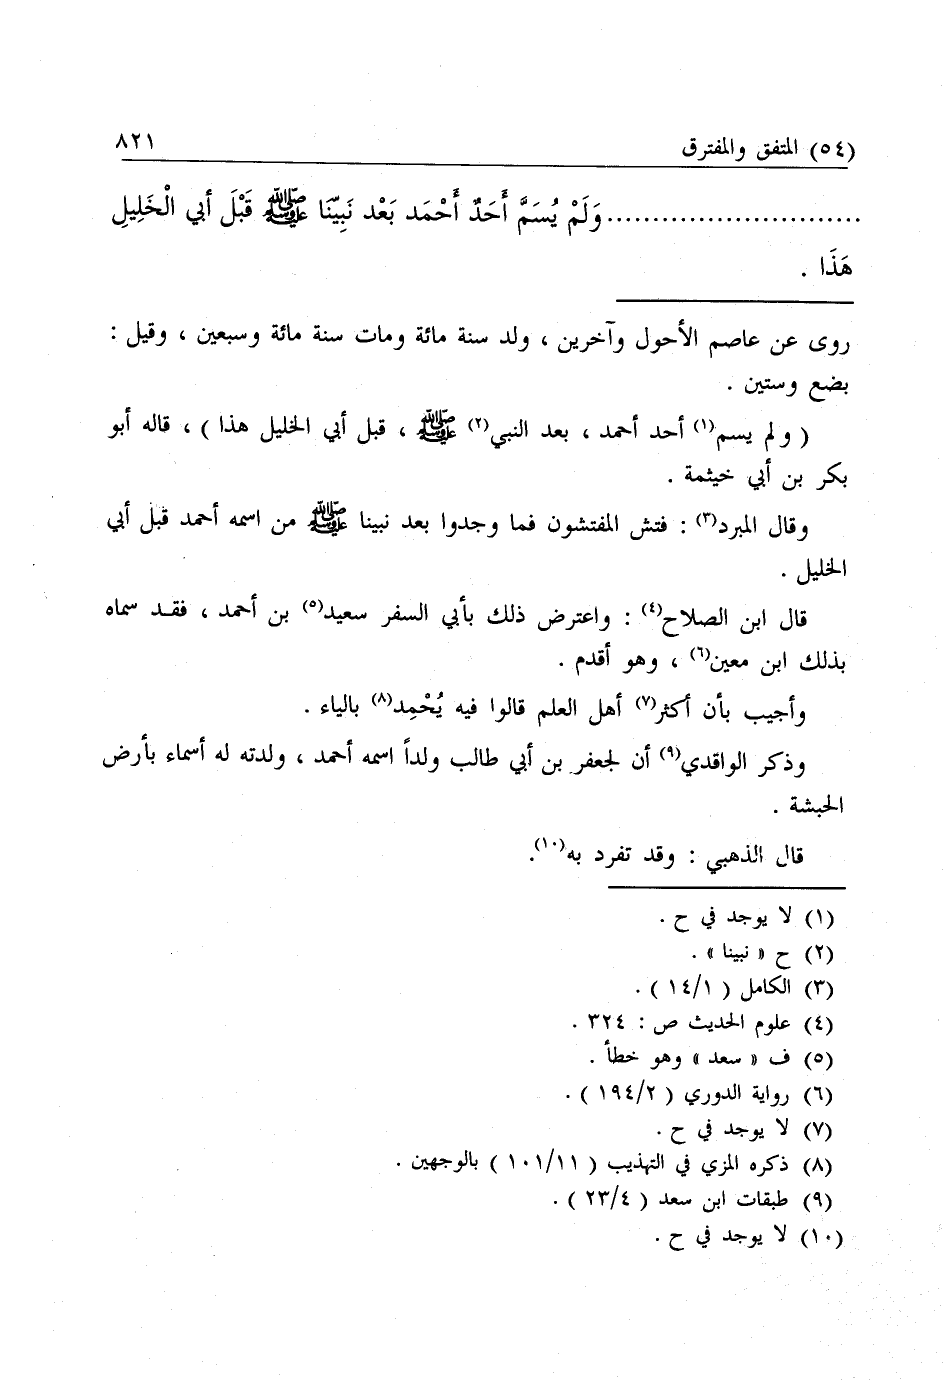 (٥٤) المتفق والمفترق ٨٢١
............................وَلَمْ يُسَمَّ أَحَدٌ أَحْمَد بَعْد نَبِيّنَا ﷺ قَبْلَ أبي الْخَلِيلِ
هَذَا .
روى عن عاصم الأحول وآخرين ، ولد سنة مائة ومات سنة مائة وسبعين ، وقيل :
بضع وستين .
( ولم يسم(١) أحد أحمد ، بعد النبي(٢) ﷺ ، قبل أبي الخليل هذا ) ، قاله أبو
بكر بن أبي خيثمة .
وقال المبرد(٣) : فتش المفتشون فما وجدوا بعد نبينا ﷺ من اسمه أحمد قبل أبي
الخليل .
قال ابن الصلاح(٤) : واعترض ذلك بأبي السفر سعيد(٥) بن أحمد ، فقد سماه
بذلك ابن معين(٦) ، وهو أقدم .
وأجيب بأن أكثر(٧) أهل العلم قالوا فيه يُحْمِد(٨) بالياء .
وذكر الواقدي(٩) أن لجعفر بن أبي طالب ولداً اسمه أحمد ، ولدته له أسماء بأرض
الحبشة .
قال الذهبي : وقد تفرد به(١٠).
(١) لا يوجد في ح .
(٢) ح « نبينا » .
(٣) الكامل ( ١٤/١ ) .
(٤) علوم الحديث ص : ٣٢٤ .
(٥) ف « سعد » وهو خطأ .
(٦) رواية الدوري ( ١٩٤/٢ ) .
(٧) لا يوجد في ح .
(٨) ذكره المزي في التهذيب ( ١٠١/١١ ) بالوجهين .
(٩) طبقات ابن سعد ( ٢٣/٤ ) .
(١٠) لا يوجد في ح .